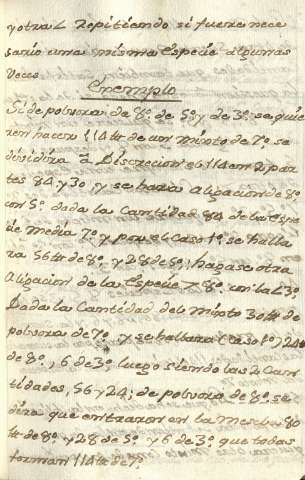 y otra L repitiendo si fuere nece
sario una misma Especie algunas
Veces
Exemplo
Si de polvora de 8º. de 5º y de 3º. se quie
ren hacer 114 lb de un mixto de 7º. se
dividira á Discrecion el 114 en 2 par
tes 84 y 30, y se hará Aligacion de 8º
con 5º dada la Cantidad 84 de la Espe
cie media 7º. y por el caso 1º. se halla
ra 56 lb de 8º, y 28 de 5º; hagase otra
Aligacion de la Especie 8º. con la L 3º
Dada la Cantidad del Mixto 30 lb de
polvora de 7º. y se hallara (caso 1º) 24
de 8º, 6 de 3º luego siendo las 2 Can
tidades, 56 y 24; de polvora de 8º. se
dira que entraron en la Mezcla 80
lb de 8º, y 28 de 5º. y 6 de 3º. que todas
forman 114 lb de 7º.